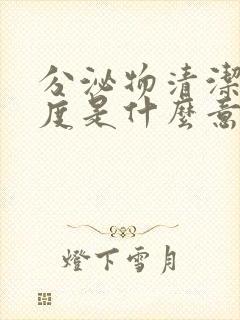 分泌物清潔
度是什麼意
燈下雪月